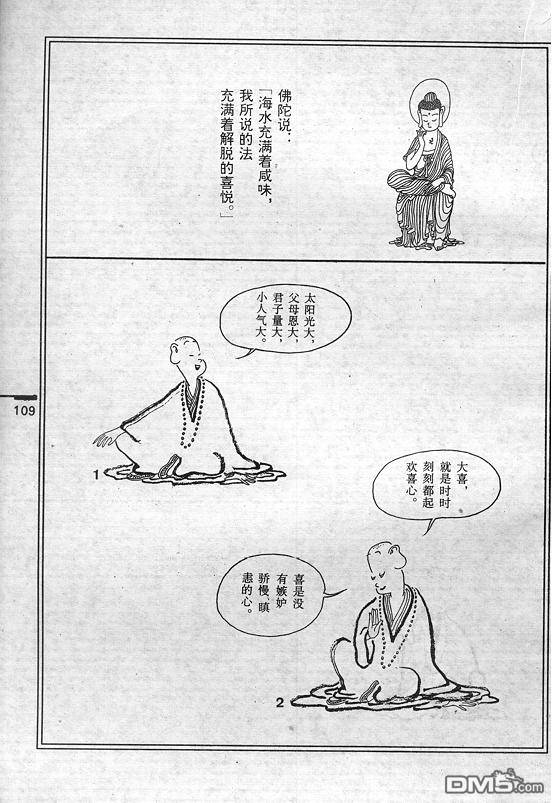 佛陀说：
「海水充满着咸味，
我所说的法
充满着解脱的喜悦。」
太阳光大，
父母恩大，
君子量大，
小人气大。
1
109
大喜，
就是时时
刻刻都起
欢喜心。
喜是没
有嫉妒
骄慢、瞋
恚的心。
2
DM5.com